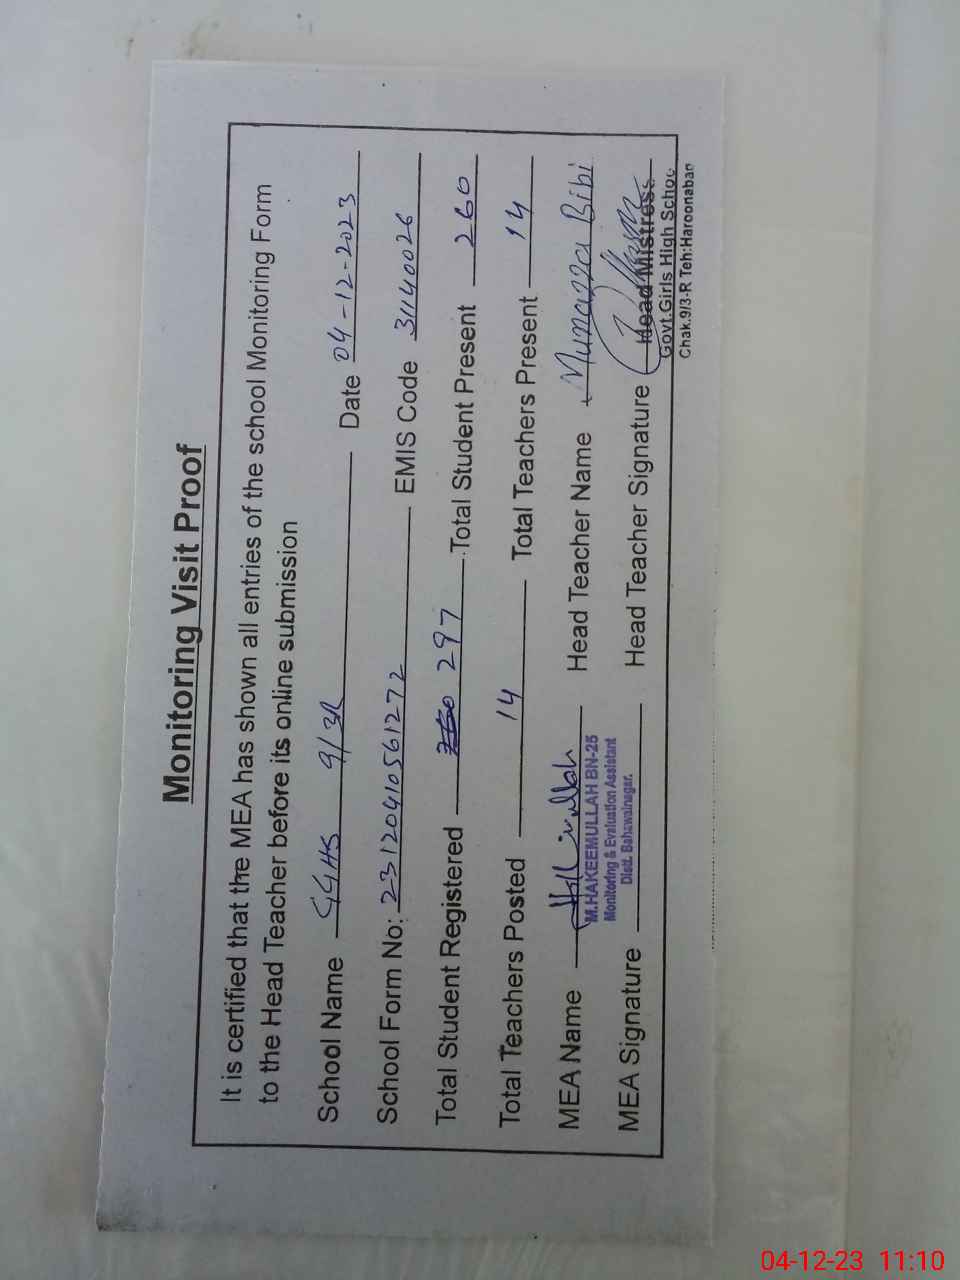 Monitoring Visit Proof
It is certified that the MEA has shown all entries of the school Monitoring Form
to the Head Teacher before its online submission
School Name GGHS 9/3R Date 04-12-2023
School Form No: 23120410561272 EMIS Code 31140026
Total Student Registered 297 Total Student Present 260
Total Teachers Posted 14 Total Teachers Present 14
MEA Name Head Teacher Name Mumazza Bibi
M.HAKEEMULLAH BN-25
Monitoring & Evaluation Assistant
Distt. Bahawalnagar.
MEA Signature Head Teacher Signature
Head Mistress
Govt.Girls High Schoo
Chak.9/3-R Teh:Haroonabad
04-12-23 11:10